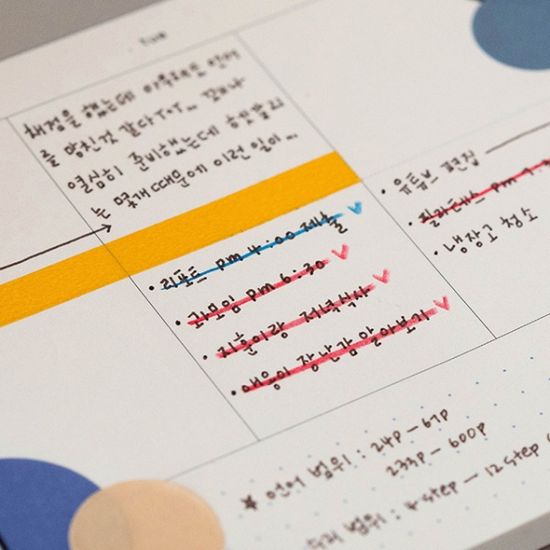 TUE
채점을 했는데 아무래도 언어
를 망친것 같다ToT... 꼬박나
열심히 준비했는데 헷갈리
는 몇개 때문에 이런 일이...
• 리포트 pm 4:00 제출
• 과모임 pm 6:30
• 지훈이랑 저녁식사
• 애옹이 장난감 알아보기
• 유튜브 편집
• 필라테스 pm 7:
• 냉장고 청소
* 언어 범위 : 24p - 67p
233p - 600p
범위 : 4 step - 12 step